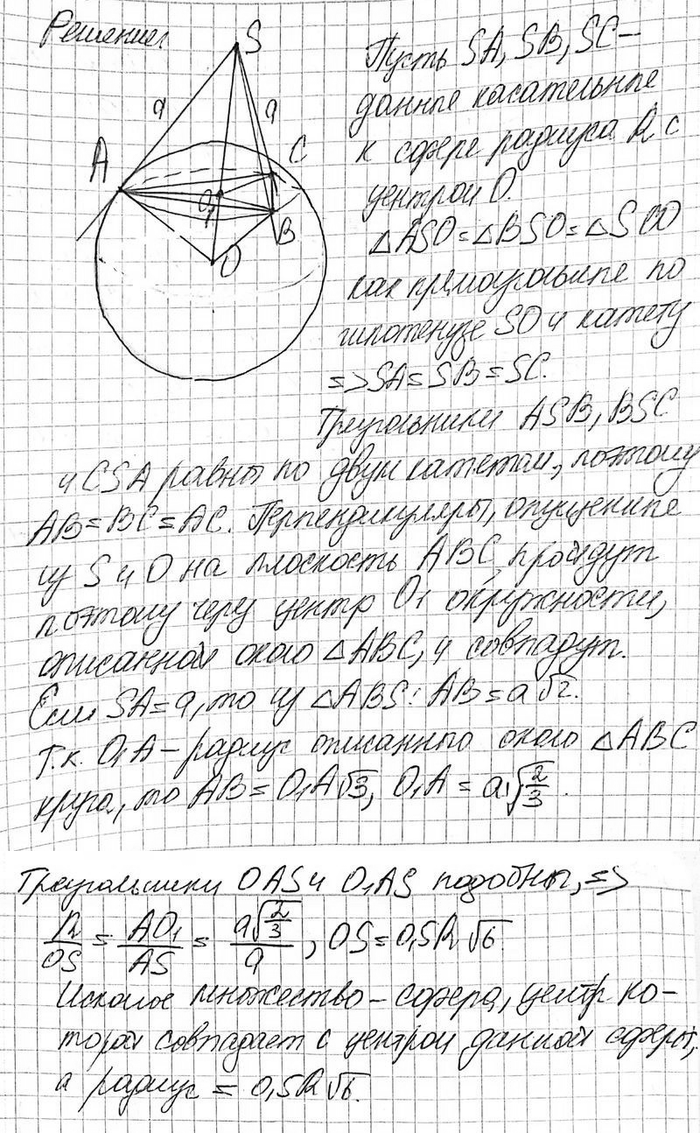 Решение
S
a
a
A
C
O₁
B
O
Пусть SA, SB, SC –
данные касательные
к сфере радиуса R с
центром O.
△ASO = △BSO = △SCO
как прямоугольные по
гипотенузе SO и катету
=> SA = SB = SC.
Треугольники ASB, BSC
и CSA равны по двум катетам, поэтому
AB = BC = AC. Перпендикуляры, опущенные
из S и O на плоскость ABC, пройдут
поэтому через центр O₁ окружности,
описанной около △ABC, и совпадут.
Если SA = a, то из △ABS: AB = a√2.
Т.к. O₁A – радиус описанного около △ABC
круга, то AB = O₁A√3, O₁A = a√(2/3).
Треугольники OAS и O₁AS подобны, =>
R/OS = AO₁/AS = a√(2/3)/a, OS = 0,5R√6
Искомое множество – сфера, центр ко-
торой совпадает с центром данной сферы,
а радиус = 0,5R√6.